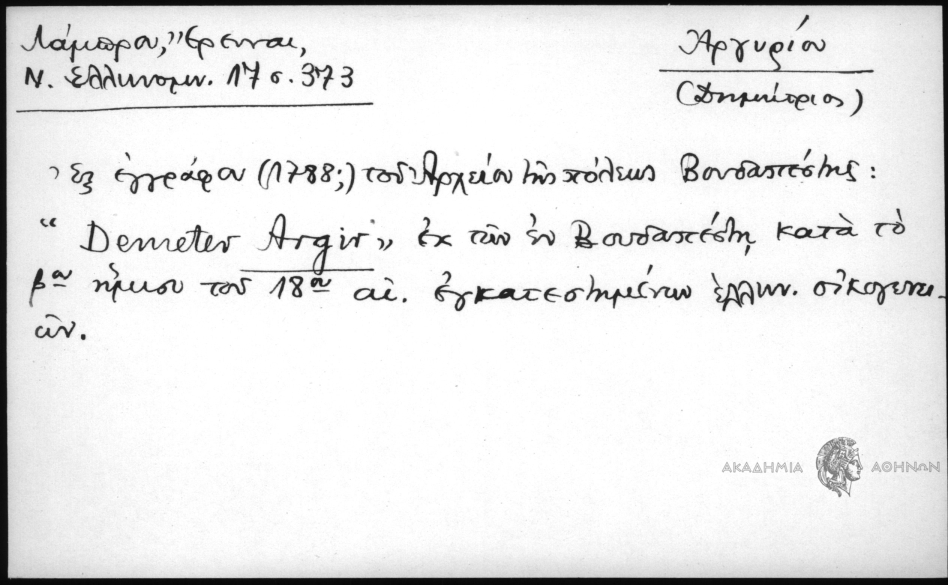 Λάμπρου, "Ἔρευναι,
Ν. Ἑλληνομν. 17 σ. 373
Ἀργυρίου
(Δημήτριος)
Ἐξ ἐγγράφου (1788;) τοῦ Ἀρχείου τῆς πόλεως Βουδαπέστης:
"Demeter Argir„ ἐκ τῶν ἐν Βουδαπέστῃ κατὰ τὸ
βον ἥμισυ τοῦ 18ου αἰ. ἐγκατεστημένων ἑλλην. οἰκογενει-
ῶν.
ΑΚΑΔΗΜΙΑ ΑΘΗΝΩΝ